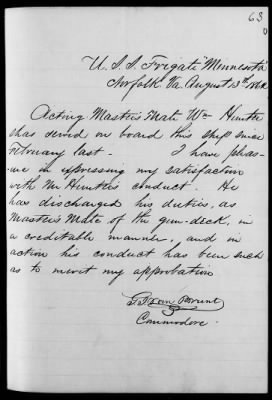 63
U.S.S. Frigate "Minnesota"
Norfolk Va August 13th 1862
Acting Master's Mate Wm Hunter
has served on board this ship since
February last - I have pleas-
ure in expressing my satisfaction
with Mr Hunter's conduct. He
has discharged his duties, as
Master's Mate of the gun-deck, in
a creditable manner, and in
action his conduct has been such
as to merit my approbation
G. J. Van Brunt
Commodore.